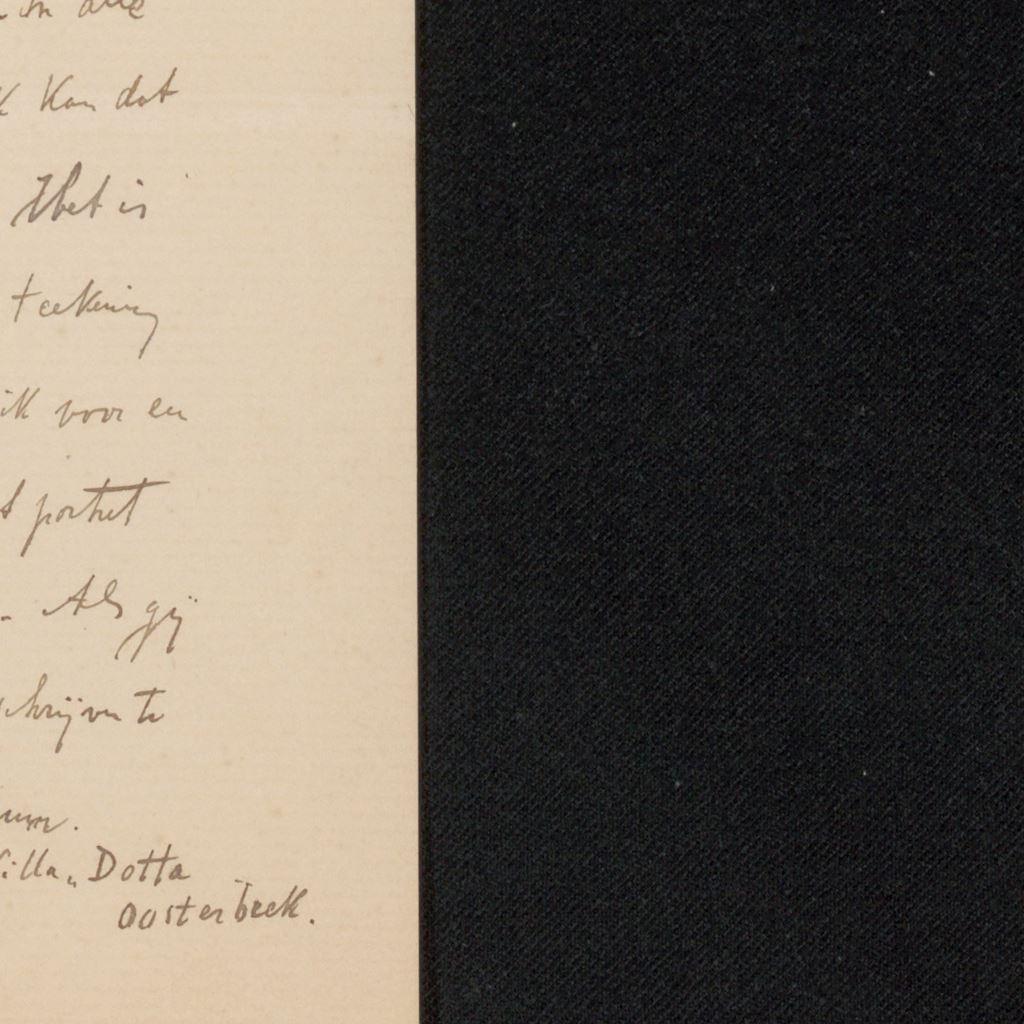 in alle
kan dat
Het is
teekening
ik voor en
portret
. Als gij
schrijven te
Villa „ Dotta
Oosterbeek.